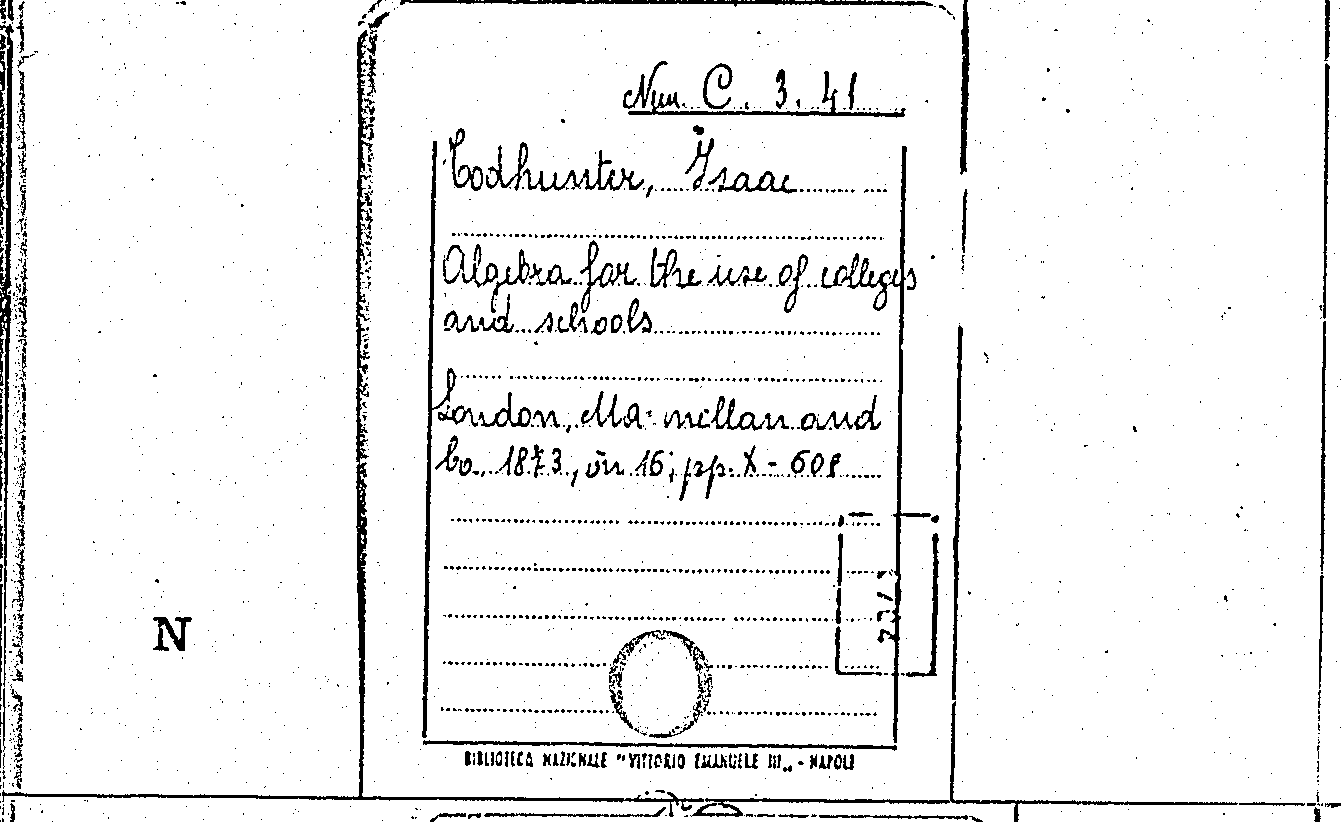 Num. C. 3. 41
Todhunter, Isaac
Algebra for the use of colleges
and schools
London, Macmillan and
Co. 1873, in 16; pp. X - 608
N
BIBLIOTECA NAZIONALE "VITTORIO EMANUELE III„ - NAPOLI